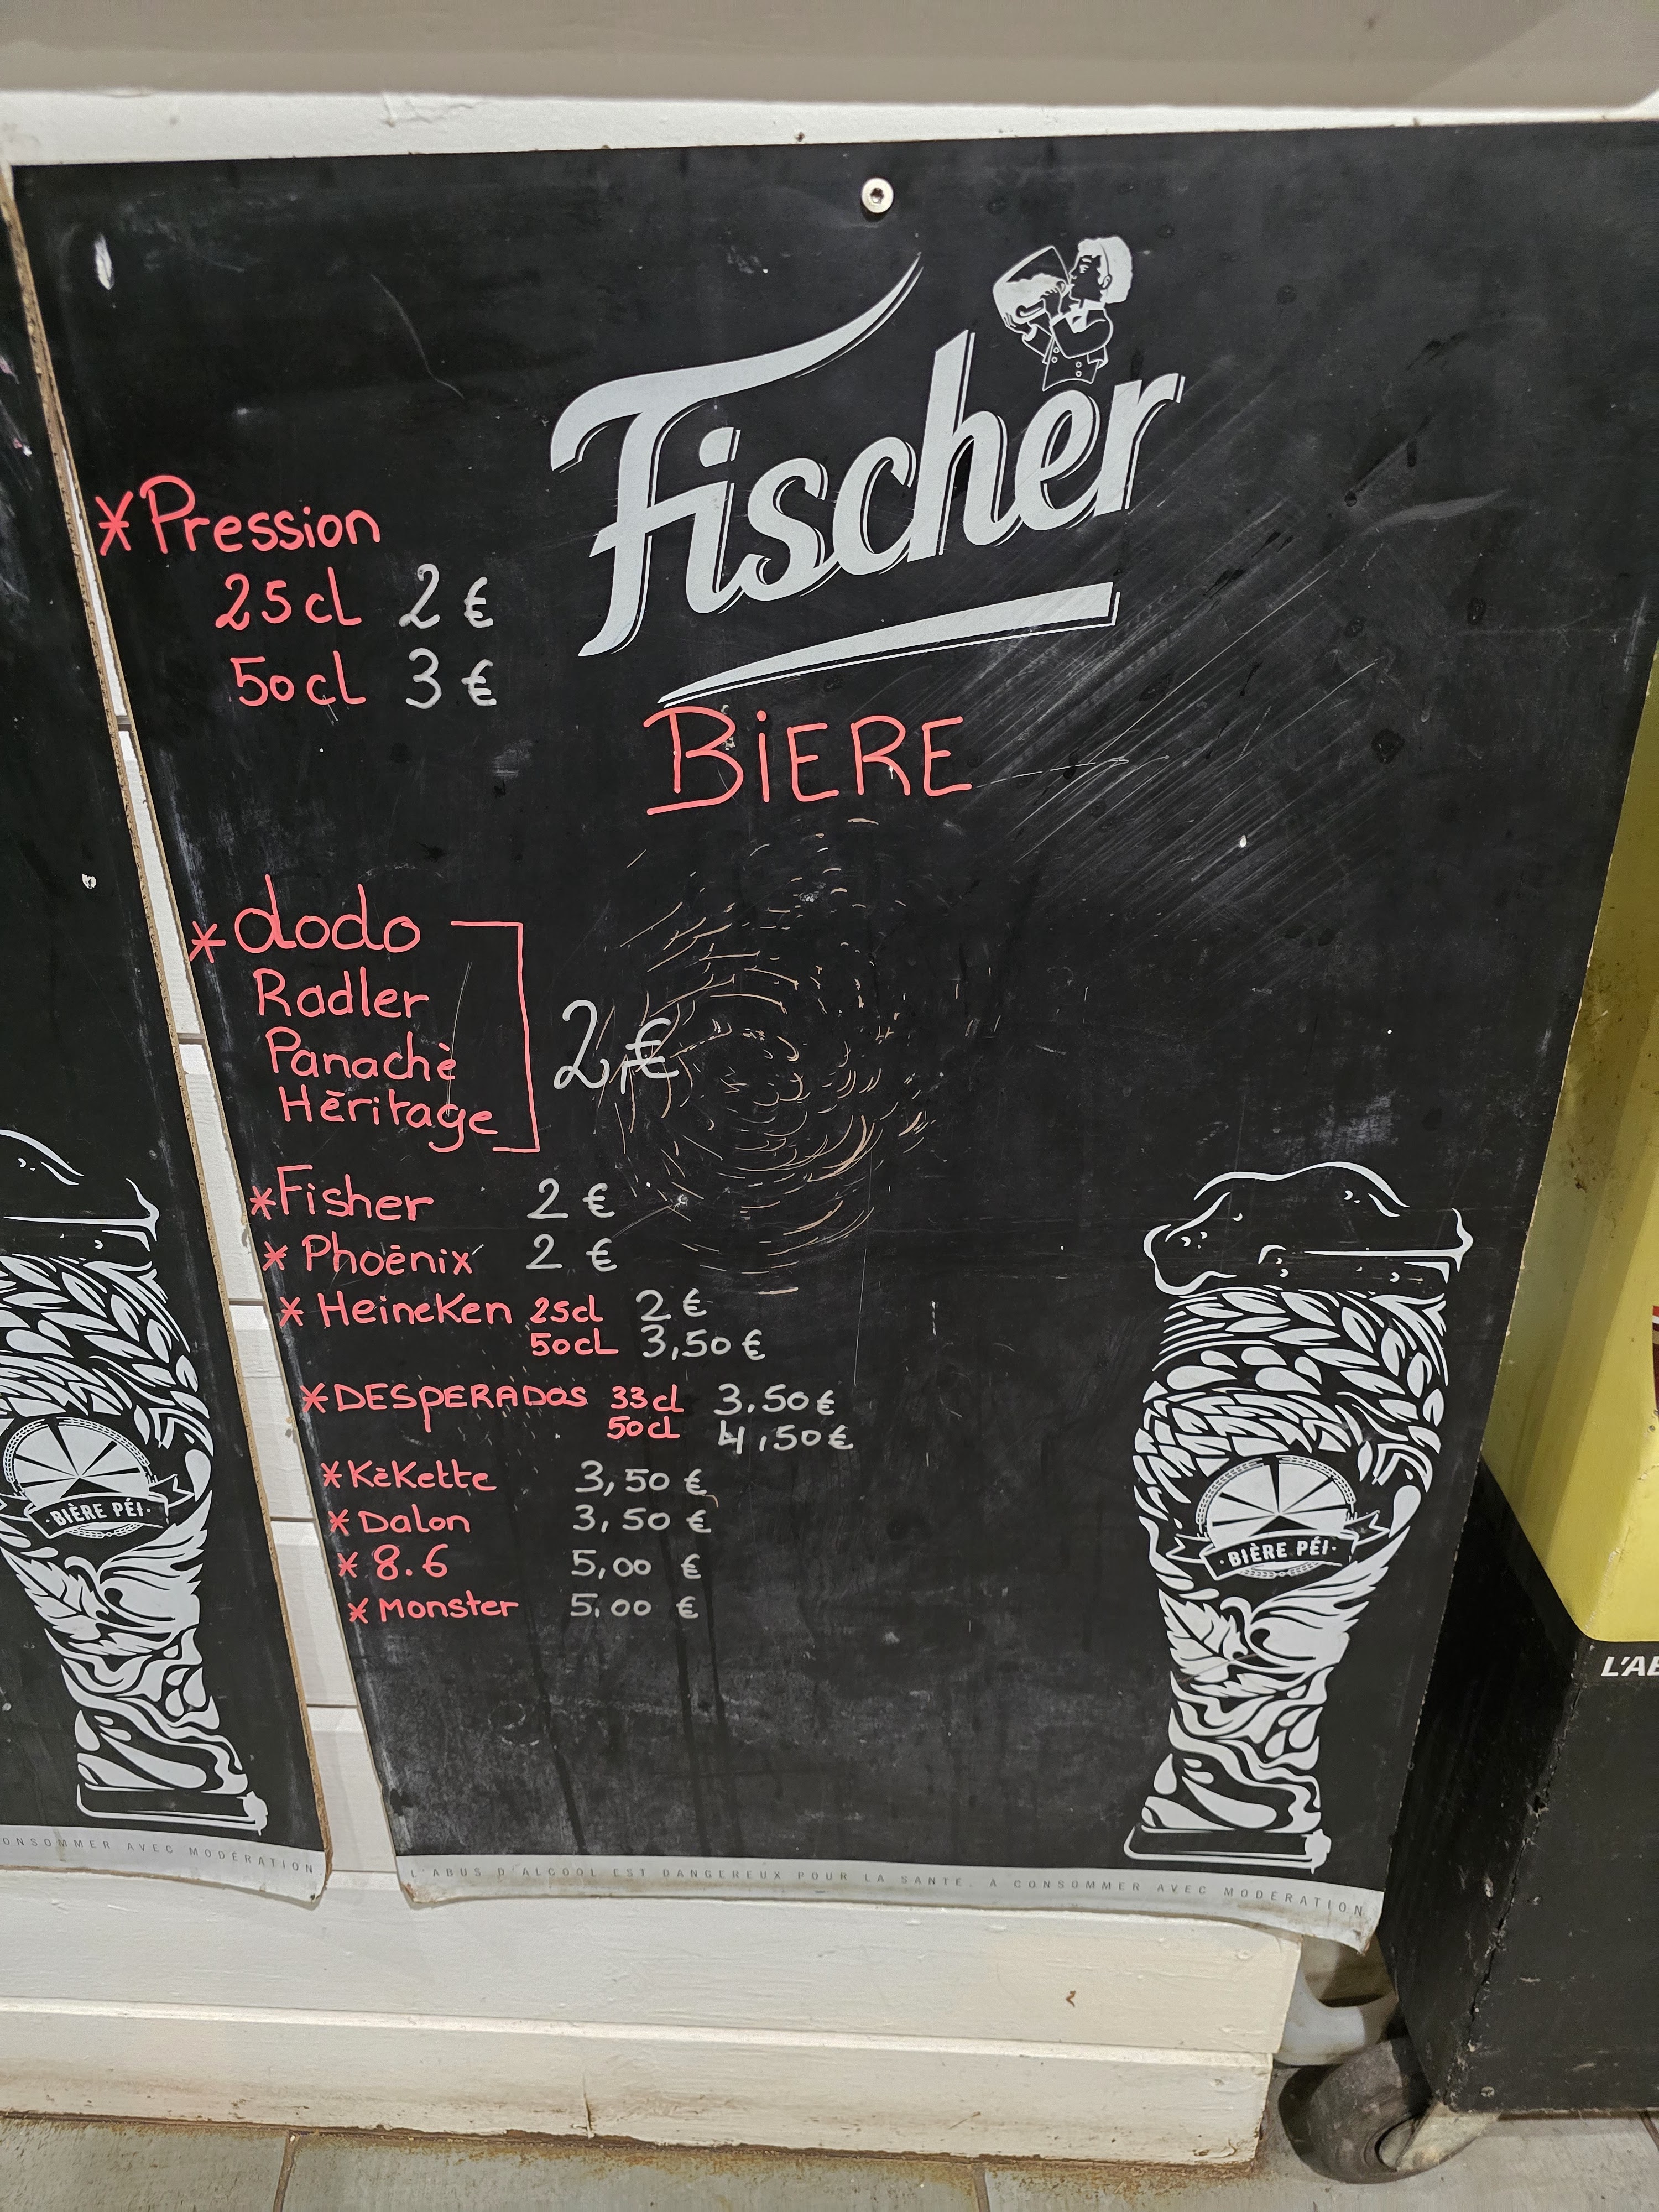 Fischer
*Pression
25cl 2 €
50cl 3 €
BiERE
*dodo
Radler
Panachè
Héritage
2,€
*Fisher 2 €
*Phoénix 2 €
*HeineKen 25cl 2 €
50cl 3,50 €
*DESPERADOS 33cl 3.50 €
50cl 4,50 €
*KèKette 3,50 €
*Dalon 3,50 €
*8.6 5,00 €
*Monster 5,00 €
·BIÈRE PÉI·
L'ABUS D'ALCOOL EST DANGEREUX POUR LA SANTÉ. À CONSOMMER AVEC MODÉRATION
·BIÈRE PÉI·
ONSOMMER AVEC MODÉRATION
L'AB